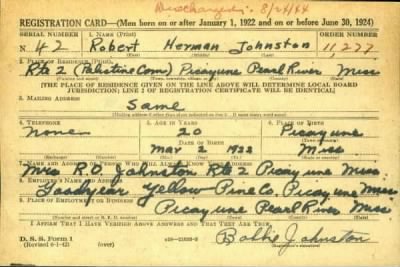 Discharged: 8/24/44
REGISTRATION CARD—(Men born on or after January 1, 1922 and on or before June 30, 1924)
SERIAL NUMBER 1. NAME (Print) ORDER NUMBER
N 42 Robert Herman Johnston 11,277
2. PLACE OF RESIDENCE (Print)
Rte 2 (Palestine Com) Picayune Pearl River Miss
[THE PLACE OF RESIDENCE GIVEN ON THE LINE ABOVE WILL DETERMINE LOCAL BOARD
JURISDICTION; LINE 2 OF REGISTRATION CERTIFICATE WILL BE IDENTICAL]
3. MAILING ADDRESS
Same
4. TELEPHONE 5. AGE IN YEARS 6. PLACE OF BIRTH
None 20 Picayune
DATE OF BIRTH
Mar 2 1922 Miss
7. NAME AND ADDRESS OF PERSON WHO WILL ALWAYS KNOW YOUR ADDRESS
Mrs R.O Johnston Rte 2 Picayune Miss
8. EMPLOYER'S NAME AND ADDRESS
Goodyear Yellow Pine Co. Picayune Miss
9. PLACE OF EMPLOYMENT OR BUSINESS
Picayune Pearl River Miss
I AFFIRM THAT I HAVE VERIFIED ABOVE ANSWERS AND THAT THEY ARE TRUE.
D. S. S. Form 1
(Revised 6-1-42) (over) Bobbie Johnston